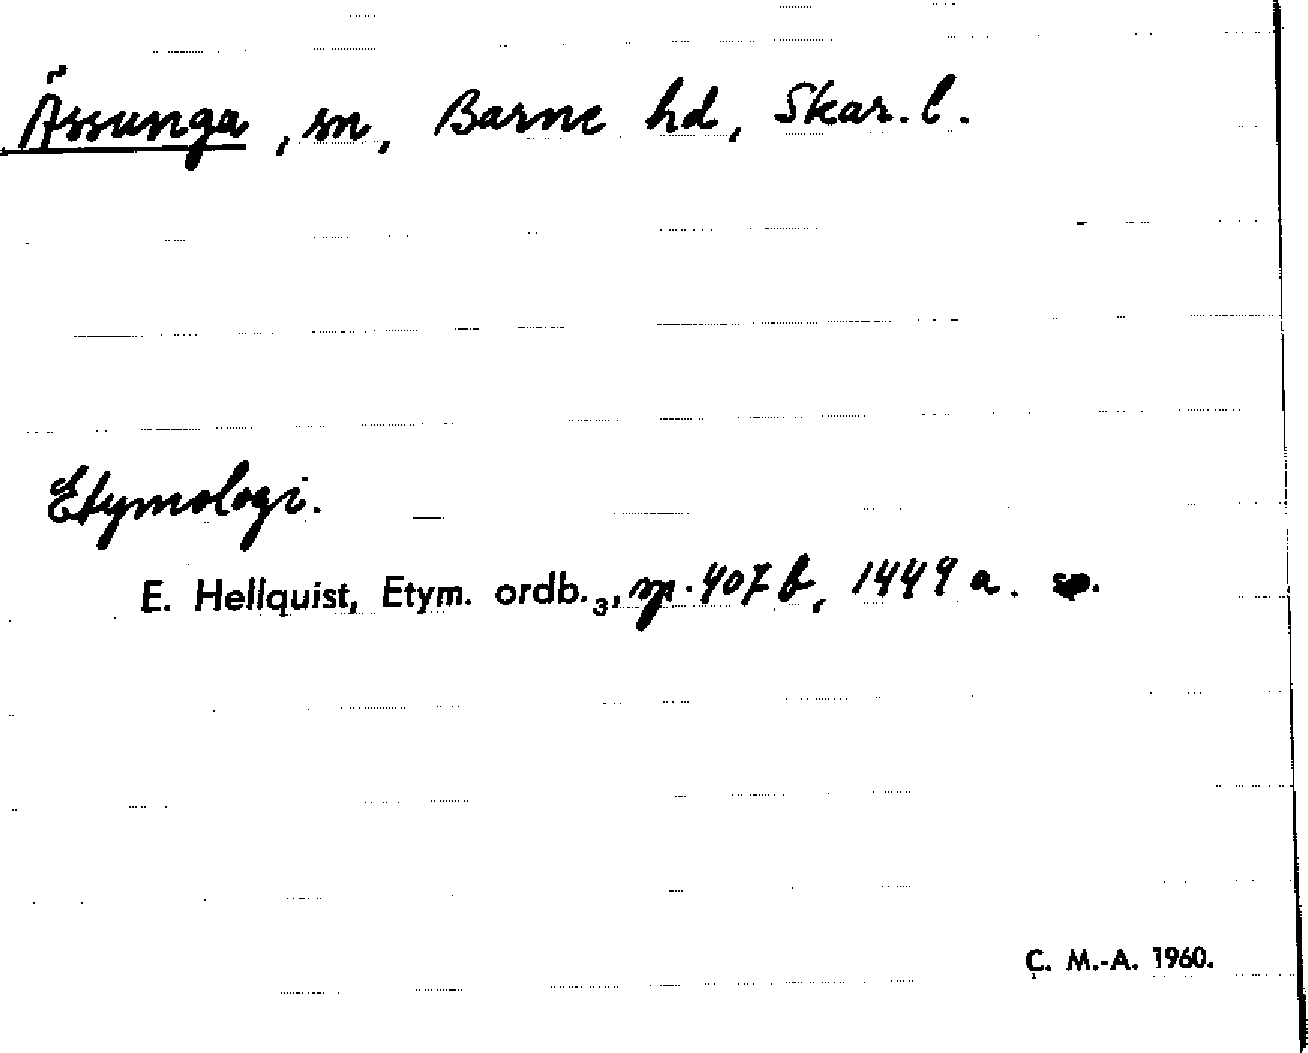 Ässunga, sn, Barne hd, Skar. l.
Etymologi.
E. Hellquist, Etym. ordb.₃, sp. 407 b, 1449 a.
C. M.-A. 1960.